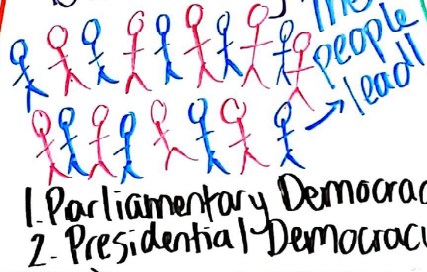 people
lead!
1. Parliamentary Democrac
2. Presidential Democracy